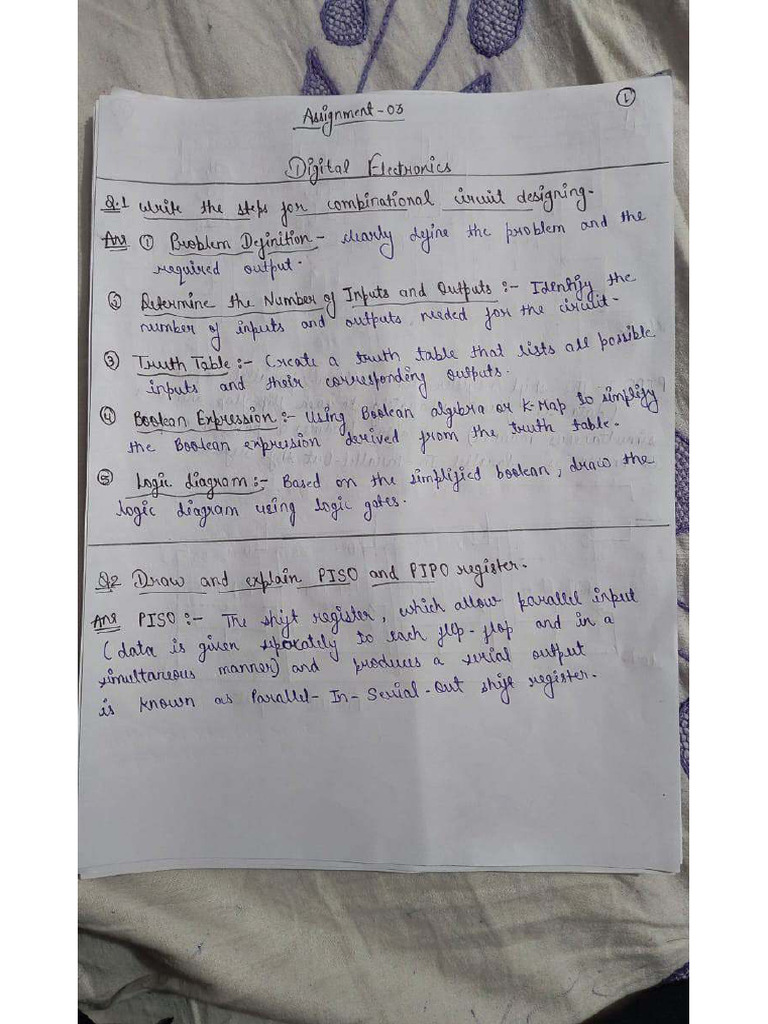 1
Assignment-03
Digital Electronics
Q.1 Write the steps for combinational circuit designing.
Ans ① Problem Definition - clearly define the problem and the
required output.
② Determine the Number of Inputs and Outputs :- Identify the
number of inputs and outputs needed for the circuit.
③ Truth Table :- Create a truth table that lists all possible
inputs and their corresponding outputs.
④ Boolean Expression :- Using Boolean algebra or K-Map to simplify
the Boolean expression derived from the truth table.
⑤ Logic diagram :- Based on the simplified boolean, draw the
logic diagram using logic gates.
Q2 Draw and explain PISO and PIPO register.
Ans PISO :- The shift register, which allow parallel input
(data is given separately to each flip-flop and in a
simultaneous manner) and produces a serial output
is known as Parallel-In-Serial-Out shift register.